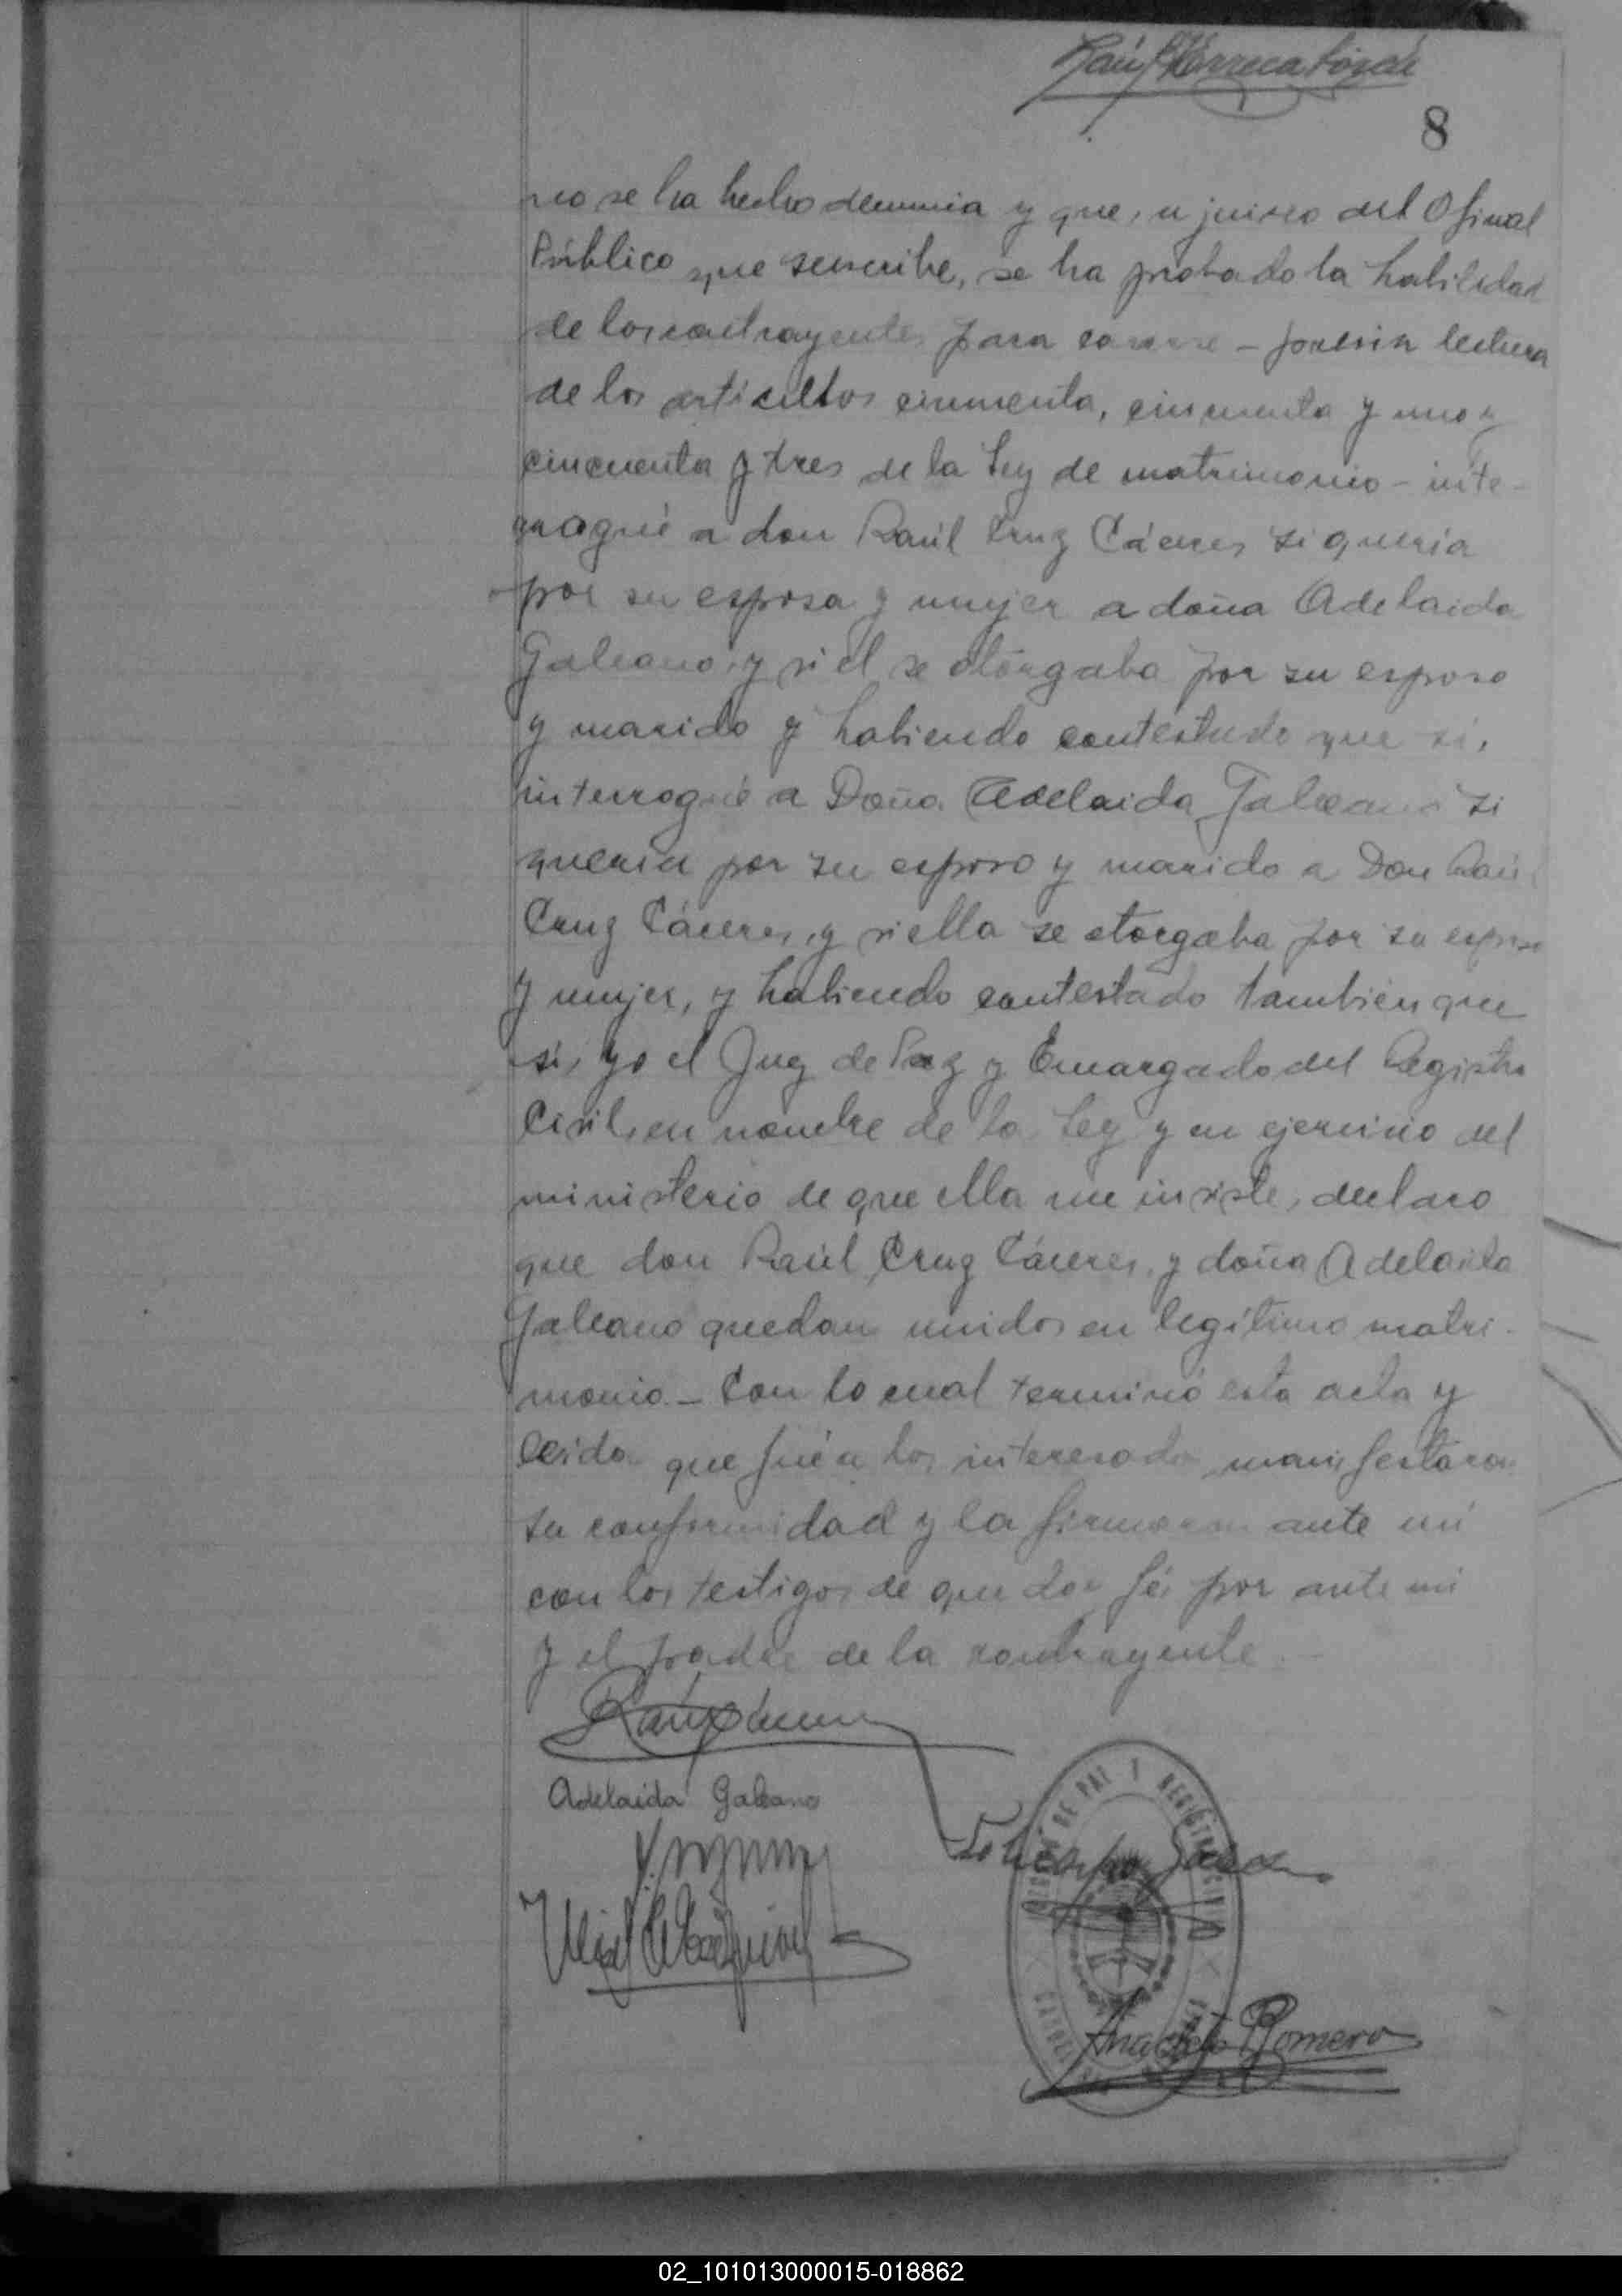 8
no se ha hecho denuncia y que, a juicio del Oficial
Público que suscribe, se ha probado la habilidad
de los contrayentes para casarse - previa lectura
de los artículos cincuenta, cincuenta y uno y
cincuenta y tres de la Ley de matrimonio - inte-
rrogué a don Raúl Cruz Cáceres si quería
por su esposa y mujer a doña Adelaida
Galeano, y si el se otorgaba por su esposo
y marido y habiendo contestado que sí,
interrogué a Doña Adelaida Galeano si
quería por su esposo y marido a Don Raúl
Cruz Cáceres, y si ella se otorgaba por su esposa
y mujer, y habiendo contestado también que
sí, yo el Juez de Paz y Encargado del Registro
Civil, en nombre de la Ley y en ejercicio del
ministerio de que ella me inviste, declaro
que don Raúl Cruz Cáceres, y doña Adelaida
Galeano quedan unidos en legítimo matri-
monio. - Con lo cual terminó esta acta y
leida que fué a los interesados manifestaron
su conformidad y la firmaron ante mí
con los testigos de que doy fé, por ante mi
y el padre de la contrayente. -
Adelaida Galeano
DE PAZ Y REGISTRO CIVIL
Anacleto Romero
02_101013000015-018862